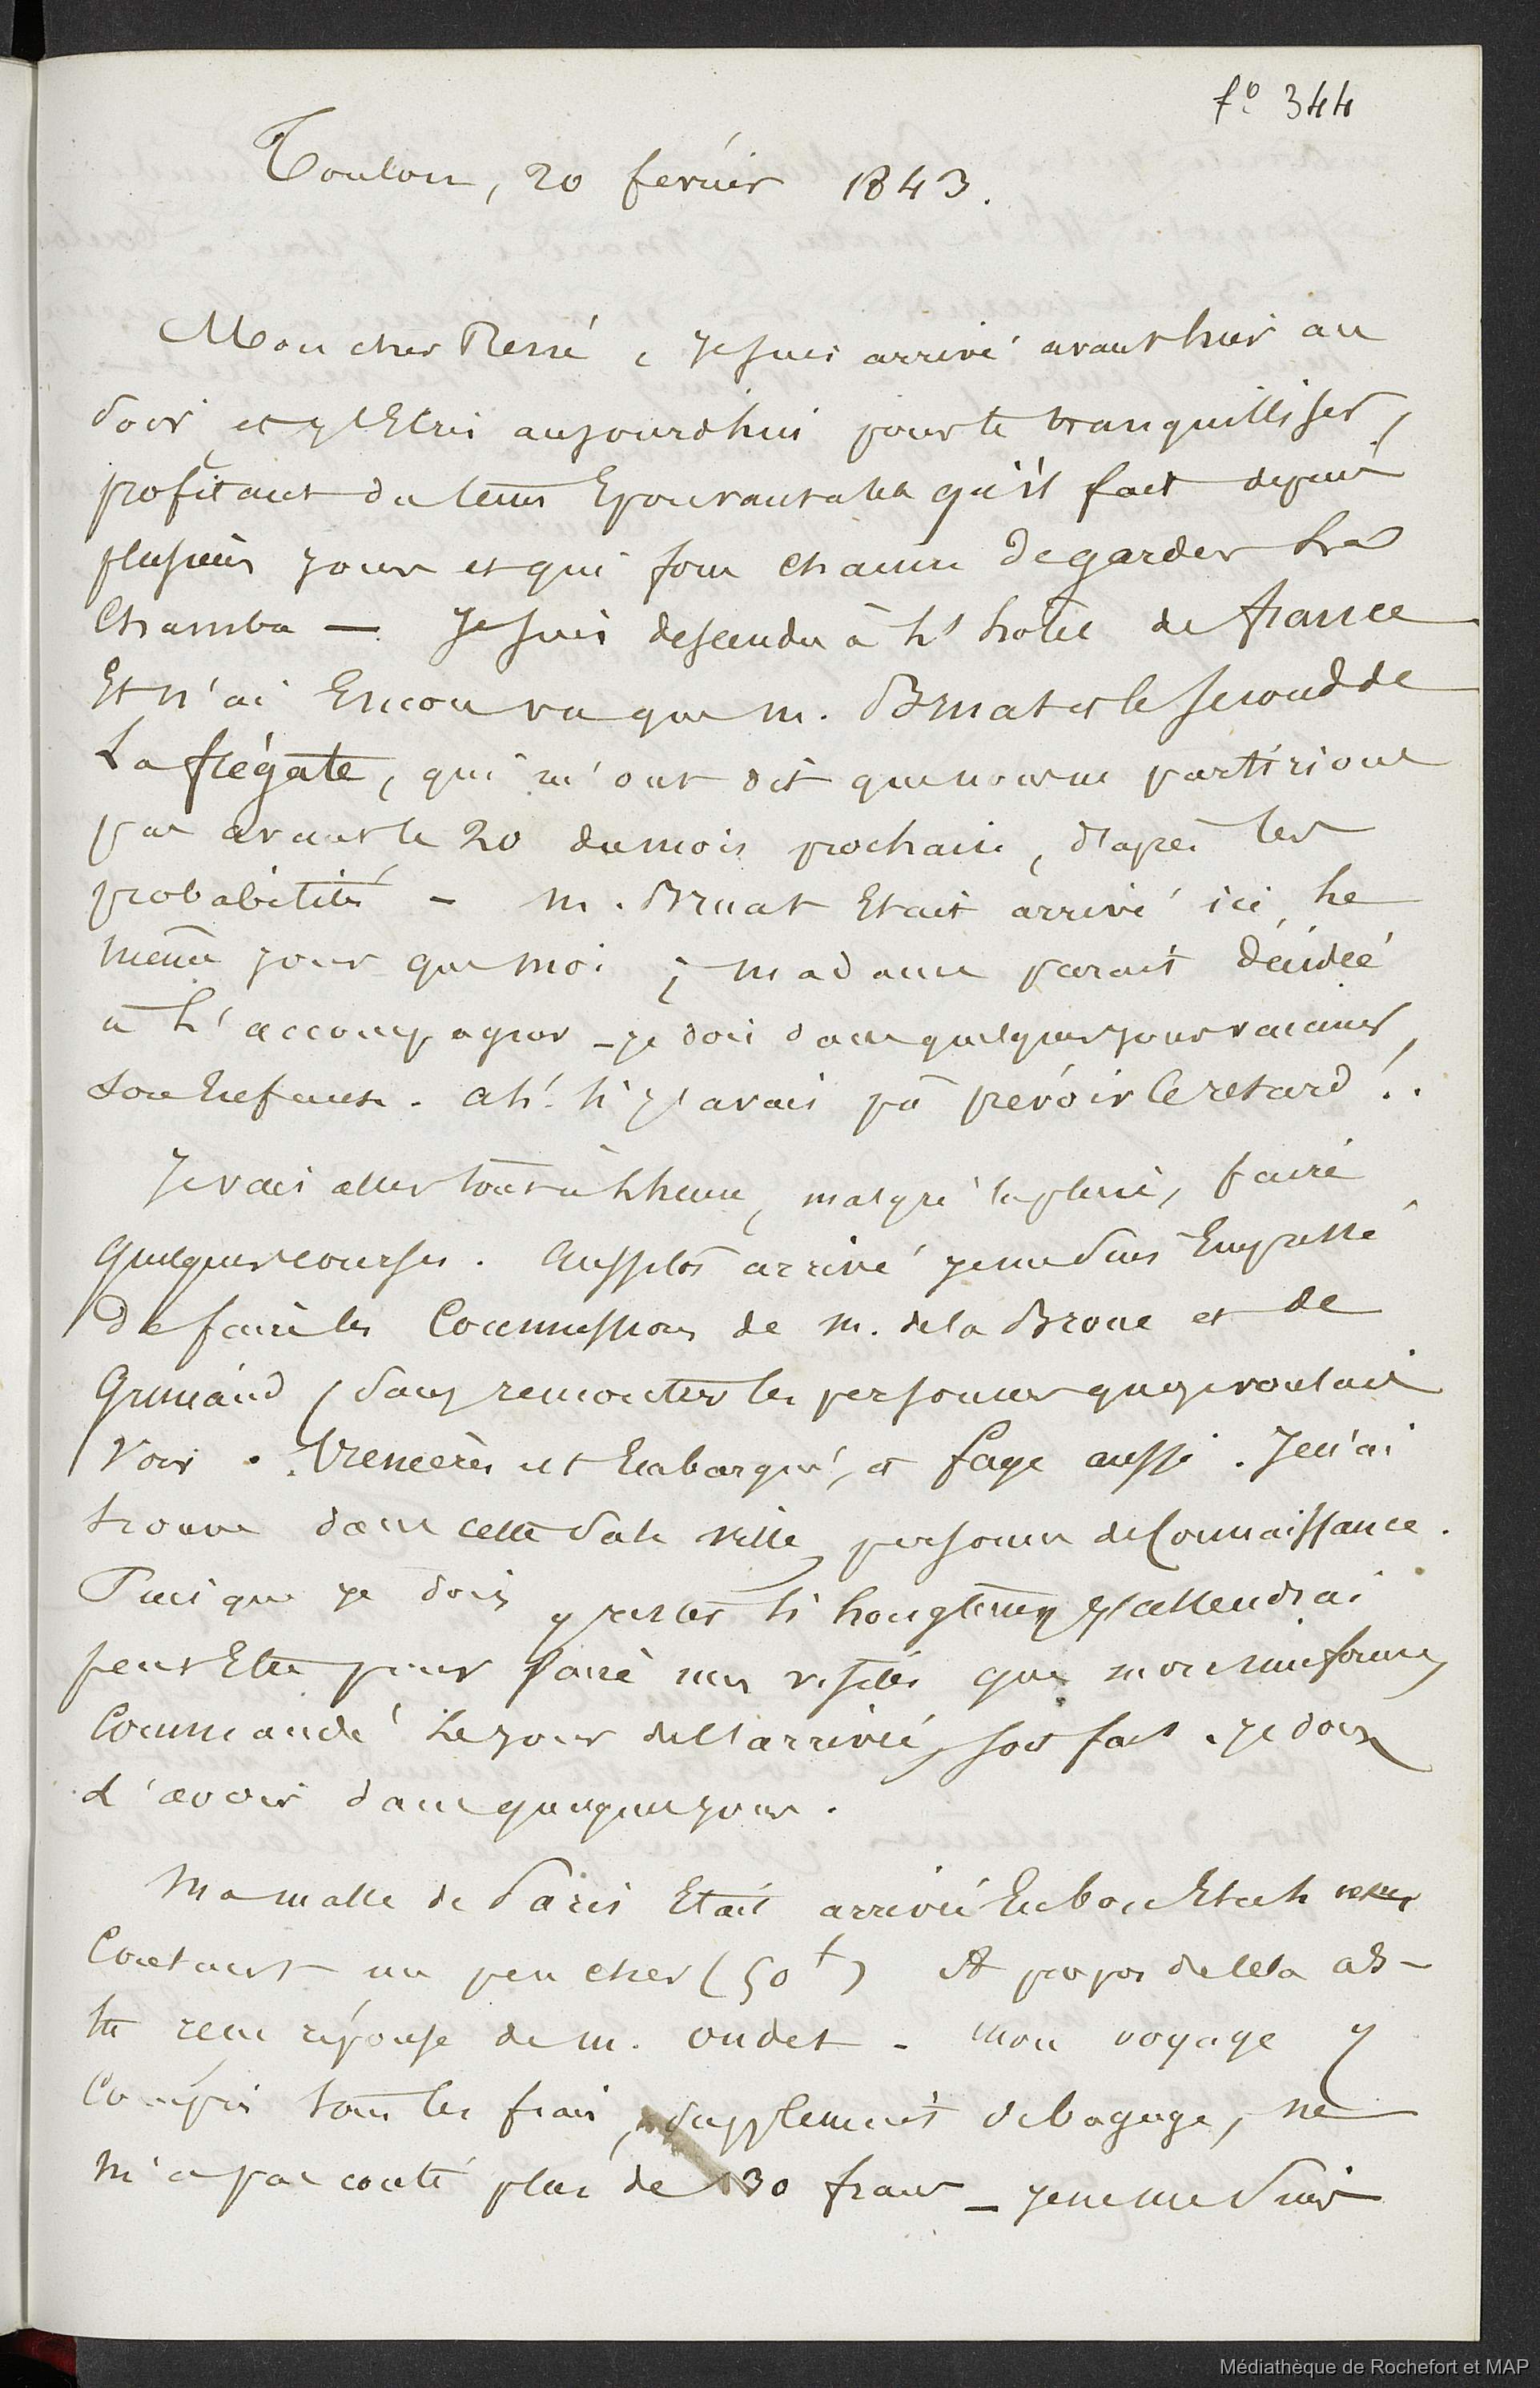 fº 344
Toulon, 20 fevrier 1843.
Mon cher René, je suis arrivé avant hier au
soir et j'écris aujourdhui pour te tranquilliser,
profitant du tems Epouvantable qu'il fait depuis
plusieurs jours et qui force chacun de garder sa
chambre — Je suis descendu à l'hôtel de france
Et n'ai Encore vu que m. Bruat et le second de
La frégate, qui m'ont dit que nous ne partirions
pas avant le 20 du mois prochain, d'après les
probabilités - m. Bruat Etait arrivé ici le
même jour que moi ; madame parait décidée
à l'accompagner - je dois dans quelques jours vacciner
son Enfant. ah! si j'avais pû prévoir ce retard !..
Je vais aller tout à l'heure, malgré la pluie, faire
quelques courses. Aussitôt arrivé je me suis Empressé
de faire les Commissions de m. de la Broue et de
Grimaud, sans rencontrer les personnes que je voulais
voir. est Embarqué, et fage aussi. Je n'ai
trouvé dans cette sale ville personne de Connaissance.
Puisque je dois y rester si longtems j'attendrai
peut Etre pour faire mes visites que mon uniforme,
Commandé le jour de l'arrivée, soit fait. je dois
l'avoir dans quelques jours.
Ma malle de Paris Etait arrivée En bon Etat
Coutant un peu cher (50 f) A propos de cela as-
tu reçu réponse de m. oudet - Mon voyage y
Compris tous les frais, supplement de bagage, ne
m'a pas couté plus de 130 francs - je ne me suis
Médiathèque de Rochefort et MAP